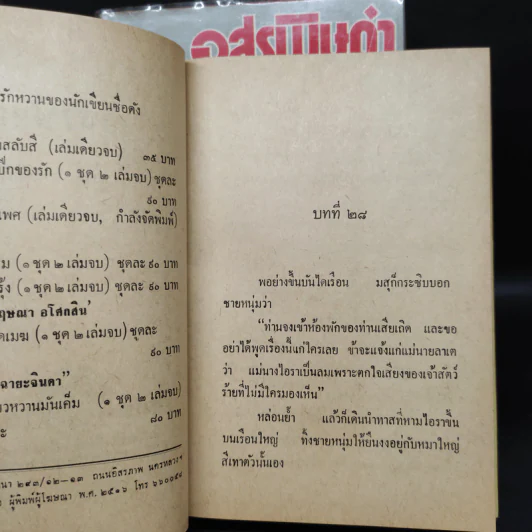 อสรพิษดำ
รักหวานของนักเขียนชื่อดัง
สลับสี (เล่มเดียวจบ)
๓๕ บาท
ของรัก (๑ ชุด ๒ เล่มจบ) ชุดละ
๙๐ บาท
เพศ (เล่มเดียวจบ, กำลังจัดพิมพ์)
ม (๑ ชุด ๒ เล่มจบ) ชุดละ ๙๐ บาท
รุ้ง (๑ ชุด ๒ เล่มจบ) ชุดละ ๙๐ บาท
กฤษณา อโศกสิน'
ดเมฆ (๑ ชุด ๒ เล่มจบ) ชุดละ
๙๐ บาท
ฉายะจินดา"
วหวานมันเค็ม (๑ ชุด ๒ เล่มจบ)
ะ ๘๐ บาท
นา ๒๙๓/๑๒–๑๓ ถนนอิสรภาพ นครหลวงฯ
ผู้พิมพ์ผู้โฆษณา พ.ศ. ๒๕๑๖ โทร
บทที่ ๒๘
พอย่างขึ้นบันไดเรือน มสุก็กระซิบบอก
ชายหนุ่มว่า
"ท่านจงเข้าห้องพักของท่านเสียเถิด และขอ
อย่าได้พูดเรื่องนี้แก่ใครเลย ข้าจะแจ้งแก่แม่นายลาเต
ว่า แม่นางไอราเป็นลมเพราะตกใจเสียงของเจ้าสัตว์
ร้ายที่ไม่มีใครมองเห็น"
หล่อนย้ำ แล้วก็เดินนำทาสที่หามไอราขึ้น
บนเรือนใหญ่ ทิ้งชายหนุ่มให้ยืนงงอยู่กับหมาใหญ่
สีเทาตัวนั้นเอง